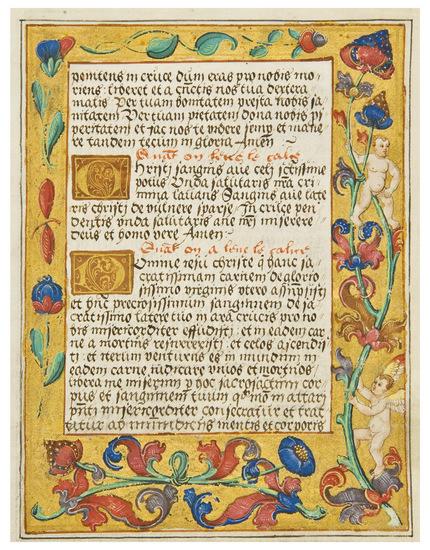 pendens in cruce dum eras pro nobis mo-
riens liberet et a cunctis nos tua dextera
malis Per tuam bonitatem presta nobis sa-
nitatem Per tuam pietatem dona nobis p
peritatem et fac nos te videre semp et mane
re tandem tecum in gloria Amen
Quāt on leue le calice
Christi sanguis aue celi sctissime
potus Unda salutaris nra cri
mina lauans Sanguis aue late
ris christi de vulnere sparse In cruce pen
dentis vnda salutaris aue mei miserere
deus et homo vere Amen
Quāt on a leue le calice
Domine ihesu christe q hanc sa
cratissimam carnem de glorio
sissimo virginis vtero assumpsisti
et precisissimum sanguinem de sa
cratissimo latere tuo in ara crucis pro no
bis misericorditer effudisti et in eadem car
ne a mortuis resurrexisti et celos ascendis
ti et iterum venturus es in mundum in
eadem carne iudicare viuos et mortuos
libera me miserum p hoc sacrosanctum cor
pus et sanguinem tuum mo in altari
misericorditer consecratur et trac
tatur ab inmundiciis mentis et corporis